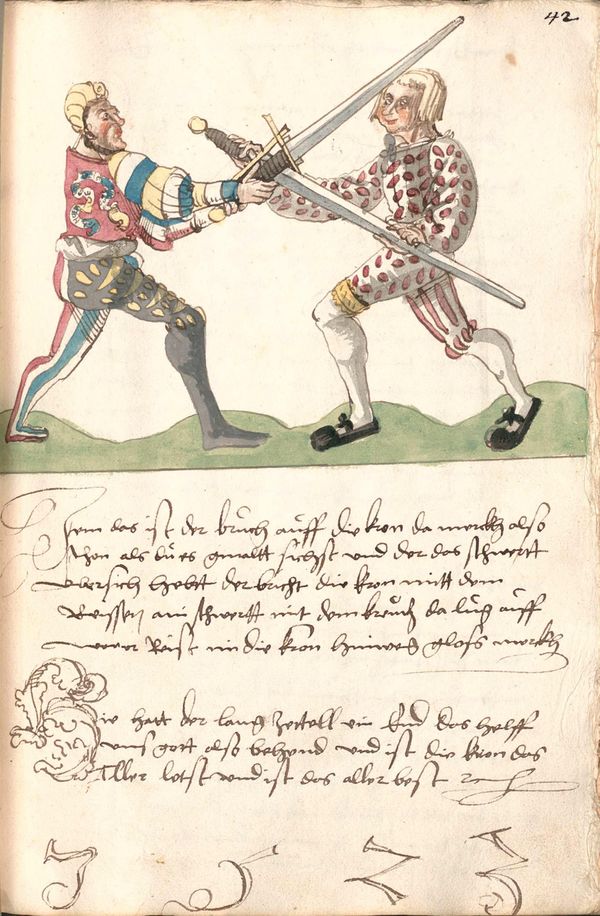 42
Item das ist der bruch auff die kron da merckh also
schon als du es gmaltt sichst und der das schwertt
ubersich hebtt der bricht die kron mitt dem
am schwertt mit dem kreutz da lug auff
Reist im die kron hinweg gloss merckh
Hie hatt der lang Zettell ein End das helff
uns gott also behend und ist die kron das
Aller letst und ist das aller best